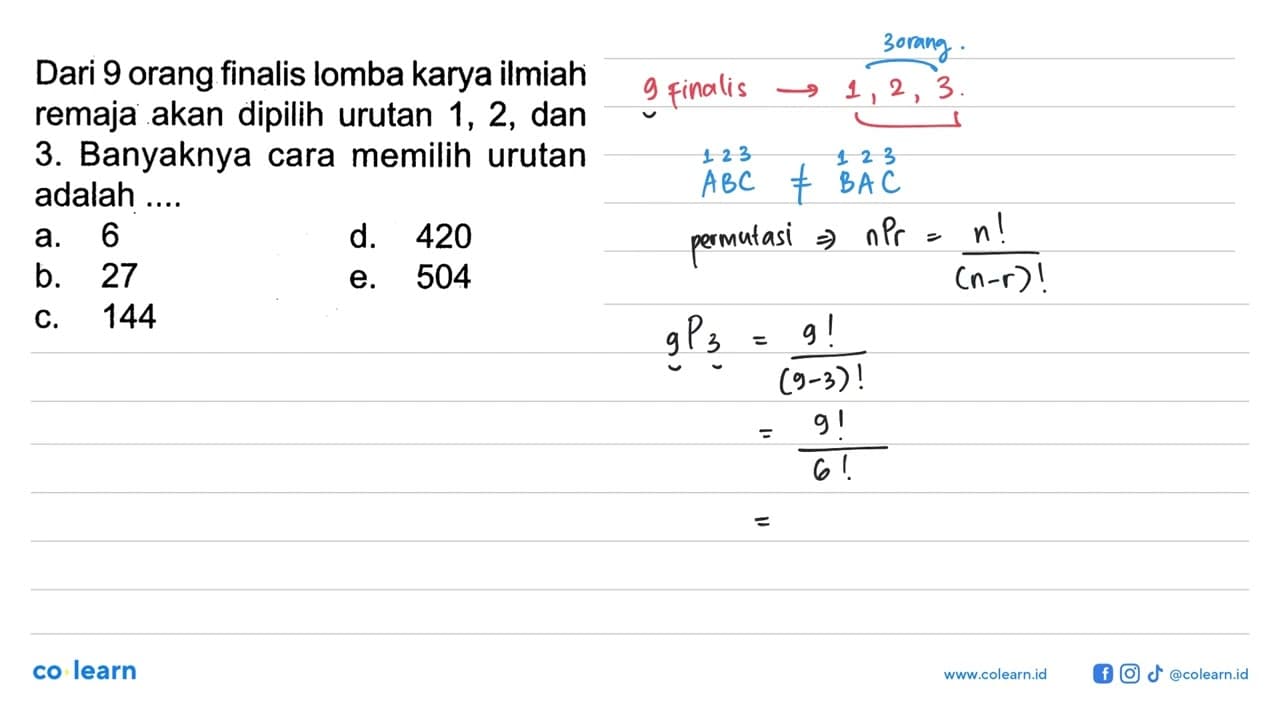 Dari 9 orang finalis lomba karya ilmiah
remaja akan dipilih urutan 1, 2, dan
3. Banyaknya cara memilih urutan
adalah ....
a. 6
b. 27
c. 144
d. 420
e. 504
3 orang.
9 Finalis → 1, 2, 3.
1 2 3 1 2 3
ABC ≠ BAC
permutasi ⇒ nPr = n!
(n-r)!
9P3 = 9!
(9-3)!
= 9!
6!
=
co learn
www.colearn.id @colearn.id